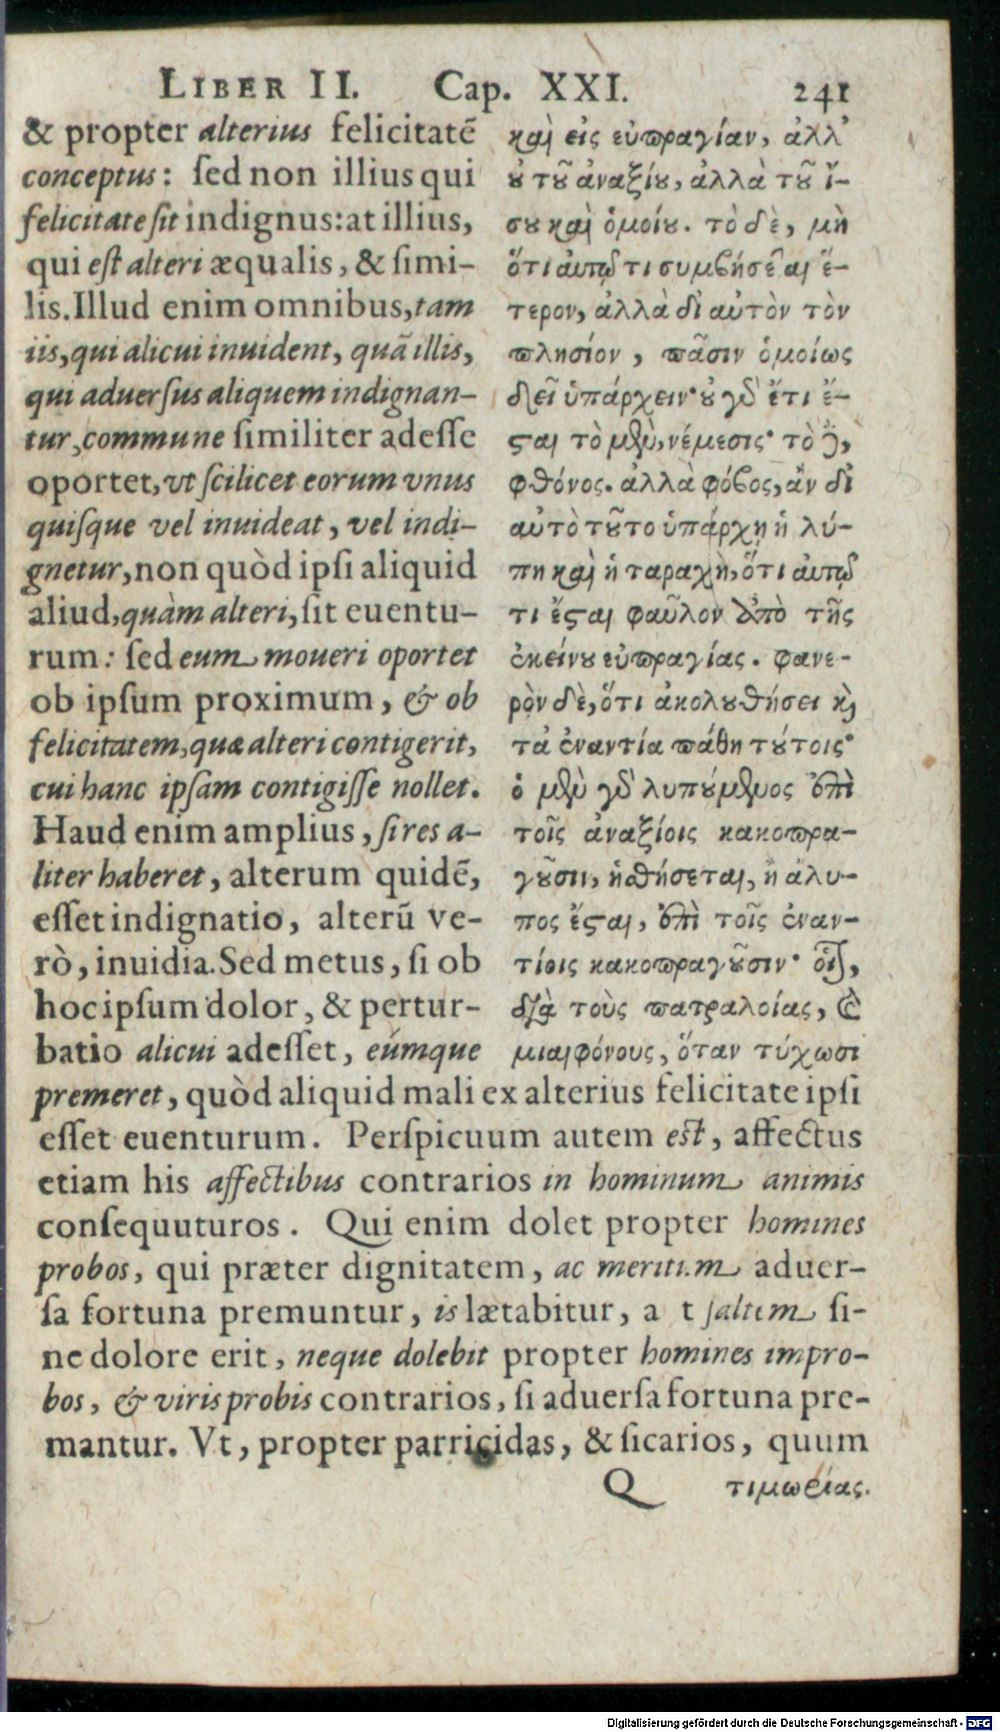 LIBER II. Cap. XXI. 241
& propter alterius felicitatē
conceptus: sed non illius qui
felicitate sit indignus: at illius,
qui est alteri æqualis, & simi-
lis. Illud enim omnibus, tam
iis, qui alicui inuident, quā illis,
qui aduersus aliquem indignan-
tur, commune similiter adesse
oportet, vt scilicet eorum vnus
quisque vel inuideat, vel indi-
gnetur, non quòd ipsi aliquid
aliud, quàm alteri, sit euentu-
rum: sed eum moueri oportet
ob ipsum proximum, & ob
felicitatem, quæ alteri contigerit,
cui hanc ipsam contigisse nollet.
Haud enim amplius, si res a-
liter haberet, alterum quidē,
esset indignatio, alterū ve-
rò, inuidia. Sed metus, si ob
hoc ipsum dolor, & pertur-
batio alicui adesset, eúmque
premeret, quòd aliquid mali ex alterius felicitate ipsi
esset euenturum. Perspicuum autem est, affectus
etiam his affectibus contrarios in hominum animis
consequuturos. Qui enim dolet propter homines
probos, qui præter dignitatem, ac meritum aduer-
sa fortuna premuntur, is lætabitur, a t saltem si-
ne dolore erit, neque dolebit propter homines impro-
bos, & viris probis contrarios, si aduersa fortuna pre-
mantur. Vt, propter parricidas, & sicarios, quum
καὶ εἰς εὐπραγίαν, ἀλλ'
οὐ τοῦ ἀναξίου, ἀλλὰ τοῦ ἴ-
σου καὶ ὁμοίου. τὸ δὲ, μὴ
ὅτι αὐτῷ τι συμβήσεται ἕ-
τερον, ἀλλὰ δι' αὐτὸν τὸν
πλησίον, πᾶσιν ὁμοίως
δεῖ ὑπάρχειν· οὐ γὰρ ἔτι ἔ-
σται τὸ μὲν, νέμεσις· τὸ δὲ,
φθόνος. ἀλλὰ φόβος, ἂν δι'
αὐτὸ τοῦτο ὑπάρχῃ ἡ λύ-
πη καὶ ἡ ταραχὴ, ὅτι αὐτῷ
τι ἔσται φαῦλον ἀπὸ τῆς
ἐκείνου εὐπραγίας. φανε-
ρὸν δὲ, ὅτι ἀκολουθήσει καὶ
τὰ ἐναντία πάθη τούτοις·
ὁ μὲν γὰρ λυπούμενος ἐπὶ
τοῖς ἀναξίοις κακοπρα-
γοῦσιν, ἡσθήσεται, ἢ ἄλυ-
πος ἔσται, ἐπὶ τοῖς ἐναν-
τίοις κακοπραγοῦσιν· οἷον,
διὰ τοὺς πατραλοίας, καὶ
μιαιφόνους, ὅταν τύχωσι
Q τιμωρίας.
Digitalisierung gefördert durch die Deutsche Forschungsgemeinschaft - DFG